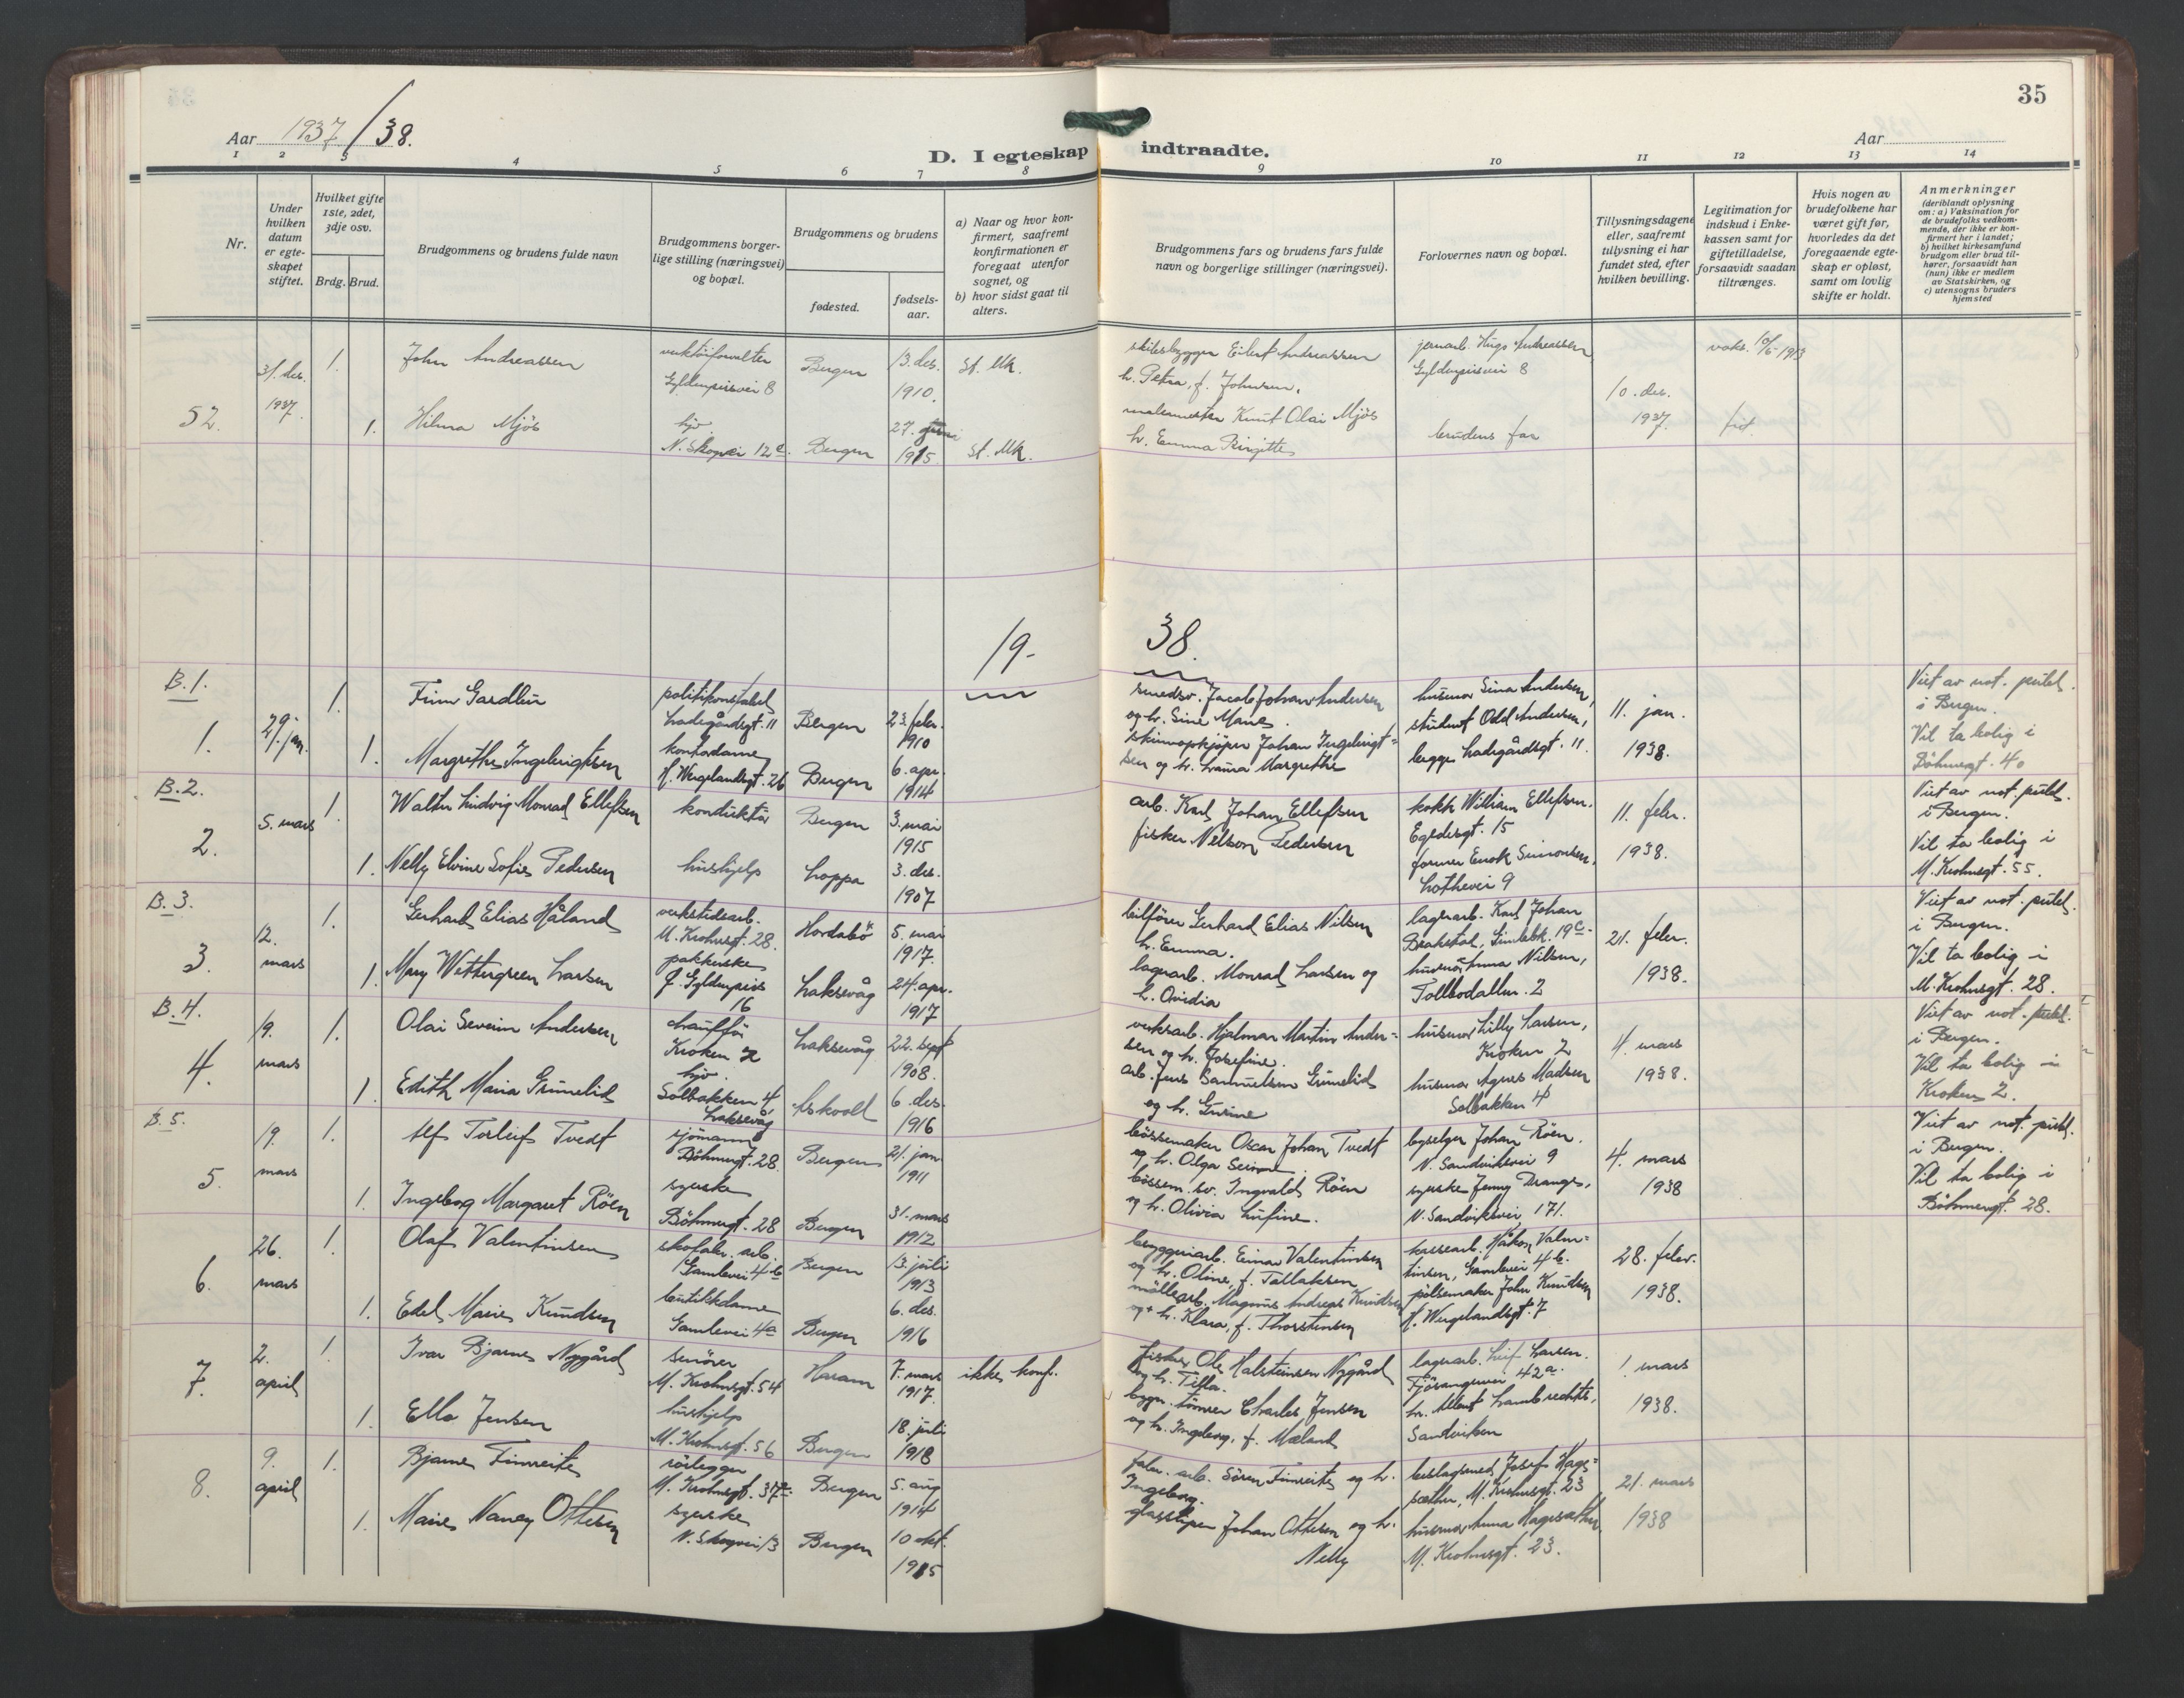 35
Aar 1937/38.
D. I egteskap indtraadte.
Aar
1 2 3 4 5 6 7 8 9 10 11 12 13 14
Nr.
Under hvilken datum er egte-skapet stiftet.
Hvilket gifte 1ste, 2det, 3dje osv.
Brdg. Brud.
Brudgommens og brudens fulde navn
Brudgommens borger-lige stilling (næringsvei) og bopæl.
Brudgommens og brudens
fødested.
fødsels-aar.
a) Naar og hvor kon-firmert, saafremt konfirmationen er foregaat utenfor sognet, og
b) hvor sidst gaat til alters.
Brudgommens fars og brudens fars fulde navn og borgerlige stillinger (næringsvei).
Forlovernes navn og bopæl.
Tillysningsdagene eller, saafremt tillysning ei har fundet sted, efter hvilken bevilling.
Legitimation for indskud i Enke-kassen samt for giftetilladelse, forsaavidt saadan tiltrænges.
Hvis nogen av brudefolkene har været gift før, hvorledes da det foregaaende egte-skap er opløst, samt om lovlig skifte er holdt.
Anmerkninger
(deriblandt oplysning om: a) Vaksination for de brudefolks vedkom-mende, der ikke er kon-firmert her i landet; b) hvilket kirkesamfund brudgom eller brud til-hører, forsaavidt han (hun) ikke er medlem av Statskirken, og c) utensogns bruders hjemsted
52. 31. des. 1937.
1. John Andreassen
Gyldenprisvei 8
Bergen
13. des. 1910.
St. Mk.
skibsbygger Eilert Andreassen
h. Petra, f. Johnsen.
jernarb. Hugo Andreassen
Gyldenprisvei 8
10. des. 1937.
vaks. 10/5-1913
1. Hilma Mjös
hjv.
N. Skogvei 12c.
Bergen
27. juni 1915
St. Mk.
malermester Knut Olai Mjös
h. Emma Birgitte
brudens far
19-38.
B.1.
1. 29. jan.
1. Finn Gardlun
politikonstabel
Ladegårdsgt. 11
Bergen
23. febr. 1910
smedsv. Jacob Johan Andersen
og h. Sine Marie.
husmor Sina Andersen,
student Odd Andersen,
begge Ladegårdsgt. 11.
11. jan. 1938.
Viet av not. publ. i Bergen.
Vil ta bolig i Böhmergt. 40
1. Margrethe Ingebrigtsen
kontordame
H. Wergelandsgt. 26
Bergen
6. apr. 1914
skinnopkjöper Johan Ingebrigt-
sen og h. Laura Margrethe
B.2.
2. 5. mars
1. Walter Ludvig Monrad Ellefsen
konduktör
Bergen
3. mai 1915
arb. Karl Johan Ellefsen
fisker Nelson Pedersen
kokk William Ellefsen.
Egedesgt. 15
former Enok Simonsen,
Lothevei 9
11. febr. 1938.
Viet av not. publ. i Bergen.
Vil ta bolig i M. Krohnsgt. 55.
1. Nelly Elvine Sofie Pedersen
hushjelp
Loppa
3. des. 1907
B.3.
3. 12. mars
1. Gerhard Elias Håland
verkstedsarb.
M. Krohnsgt. 28.
Hordabö
5. mai 1917.
bilförer Gerhard Elias Nilsen
h. Emma.
lagerarb. Karl Johan
Brakstad, Simlebk. 19c.
21. febr. 1938.
Viet av not. publ. i Bergen.
Vil ta bolig i M. Krohnsgt. 28.
1. Mary Wettergreen Larsen
pakkerske
G. Gyldenpris 16
Laksevåg
24. apr. 1917
lagerarb. Monrad Larsen og
h. Ovidia
husmor Anna Nilsen,
Tollbodallm. 2
B.4.
4. 19. mars
1. Olai Severin Andersen
chaufför
Kroken 2
Laksevåg
22. sept 1908.
verksarb. Hjalmar Martin Ander-
sen og h. Josefine.
husmor Lilly Larsen,
Kroken 2
4. mars 1938.
Viet av not. publ. i Bergen.
Vil ta bolig i Kroken 2.
1. Edith Maria Grimelid
hjv.
Solbakken 4, Laksevåg
Askvoll
6. des. 1916
arb. Jens Samuelsen Grimelid
og h. Gurine
husmor Agnes Madsen
Solbakken 4
B.5.
5. 19. mars
1. Alf Torleif Tvedt
sjömann
Böhmergt. 28.
Bergen
21. jan. 1911
bössemaker Oscar Johan Tvedt
og h. Olga Serine.
byselger Johan Röen.
N. Sandviksvei 9
4. mars 1938
Viet av not. publ. i Bergen.
Vil ta bolig i Böhmergt. 28.
1. Ingeborg Margaret Röen
syerske
Böhmergt. 28
Bergen
31. mars 1912
bössem. sv. Ingvald Röen
og h. Olivia Lufine.
syerske Jenny Drange,
N. Sandviksvei 171.
6. 26. mars
1. Olaf Valentinsen
skofabr. arb.
Gamlevei 4b
Bergen
13. juli 1913
bryggeriarb. Einar Valentinsen
og h. Oline, f. Tallaksen
Håkon Valen-
tinsen, Gamlevei 4b.
28. febr. 1938.
1. Edel Marie Knudsen
butikkdame
Gamlevei 4a
Bergen
6. des. 1916
möllearb. Magnus Andreas Knudsen
og h. Klara, f. Thorstensen
pölsemaker John Knudsen
H. Wergelandsgt. 7
7. 2. april
1. Ivar Bjarne Nygård
M. Krohnsgt. 54
Haram
7. mars 1917.
ikke konf.
fisker Ole Halsteinsen Nygård
og h. Tilla.
lagerarb. Leif Larsen.
Fjösangervei 42a.
1. mars 1938.
1. Ella Jensen
hushjelp
M. Krohnsgt. 56
Bergen
18. juli 1918
bygn. tömrer Charles Jensen
og h. Ingeborg, f. Mæland
hr. Albert Lambrechts,
Sandviken
8. 9. april
1. Bjarne Finnreite
rörlegger
M. Krohnsgt. 37a.
Bergen
5. aug 1914
fabr. arb. Sören Finnreite og h.
Ingeborg.
beslagsmed Josef Hage-
sæther, M. Krohnsgt. 23
21. mars 1938
1. Marie Nancy Ottesen
syerske
N. Skogvei 13
Bergen
10 okt. 1915
glassliper Johan Ottesen og h.
Nelly
husmor Anna Hagesæther
M. Krohnsgt. 23.